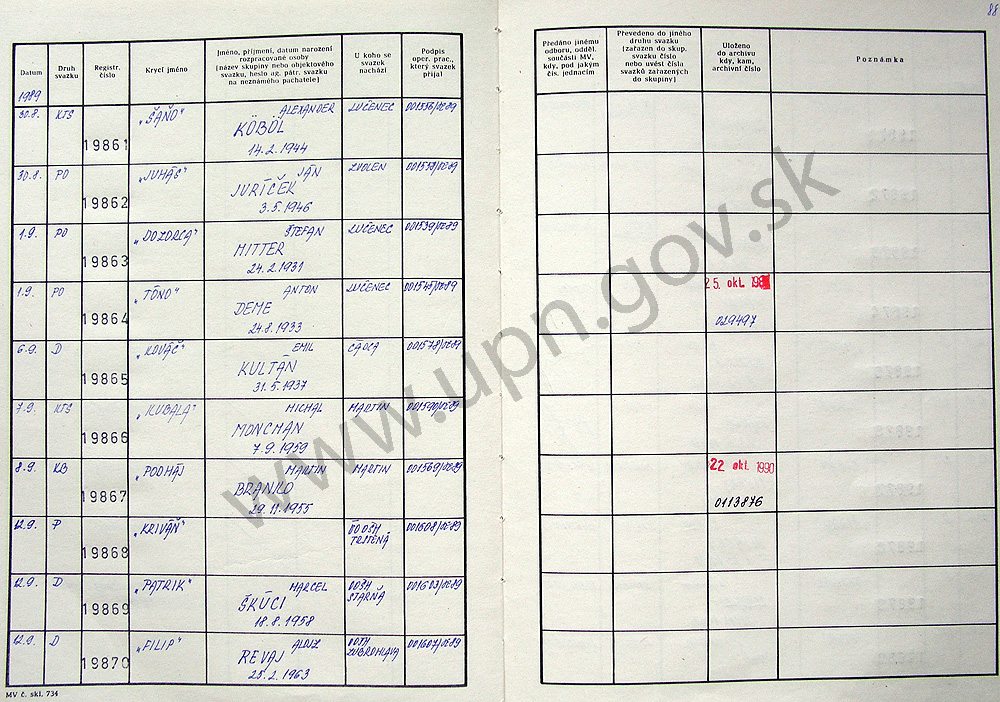 88
Datum
Druh svazku
Registr. číslo
Krycí jméno
Jméno, příjmení, datum narození
rozpracované osoby
(název skupiny nebo objektového
svazku, heslo ag. pátr. svazku
na neznámého pachatele)
U koho se
svazek
nachází
Podpis
oper. prac.,
který svazek
přijal
Předáno jinému
odboru, odděl.
součásti MV,
kdy, pod jakým
čís. jednacím
Převedeno do jiného
druhu svazku
(zařazen do skup.
svazku číslo
nebo uvést číslo
svazků zařazených
do skupiny)
Uloženo
do archivu
kdy, kam,
archivní číslo
Poznámka
1989
30.8. KTS 19861 „ŠAŇO" ALEXANDER LUČENEC 001556/02-89
KÖBÖL
14.2.1944
30.8. PO 19862 „JUHÁS" JÁN ZVOLEN
JURÍČEK
3.5.1946
1.9. PO 19863 „DOZORCA" ŠTEFAN LUČENEC 001539/02-89
MITTER
24.2.1931
1.9. PO 19864 „TÓNO" ANTON LUČENEC 001545/02-89
DEME
24.8.1933
25. okt.
029497
6.9. D 19865 „KOVÁČ" EMIL ČADCA 001578/02-89
KULTÁN
31.5.1937
7.9. KTS 19866 „KUBALA" MICHAL MARTIN 001590/02-89
MONCMAN
7.9.1959
8.9. KB 19867 „PODHÁJ MARTIN MARTIN 001569/02-89
BRANKO
29.11.1955
22 okt. 1990
0113876
12.9. P 19868 „KRIVÁŇ" OO OŠH 001608/02-89
TRSTENÁ
12.9. D 19869 „PATRIK" MARCEL OOŠH 001603/02-89
ŠKÚCI
18.8.1958
12.9. D 19870 „FILIP" ALOJZ 001607/02-89
REVAJ
25.2.1963
MV č. skl. 734
www.upn.gov.sk